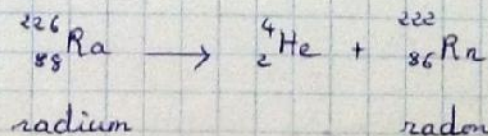 ²²⁶₈₈Ra ⟶ ⁴₂He + ²²²₈₆Rn
radium radon